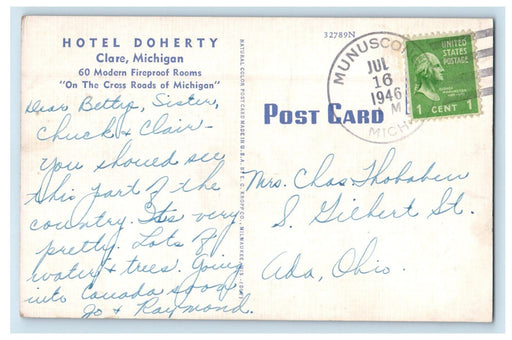 HOTEL DOHERTY
Clare, Michigan
60 Modern Fireproof Rooms
"On The Cross Roads of Michigan"
Dear Betty, Sister,
Chuck & Clair -
You should see
this part of the
country. It's very
pretty. Lots of
water & trees. Going
into Canada soon
Jo & Raymond.
NATURAL COLOR POST CARD MADE IN U.S.A. BY E. C. KROPP CO., MILWAUKEE, WIS.
32789N
POST CARD
MUNUSCO
JUL
16
1946
M
MICH
UNITED
STATES
POSTAGE
1 CENT 1
Mrs. Chas Thobaben
S. Gilbert St.
Ada, Ohio.